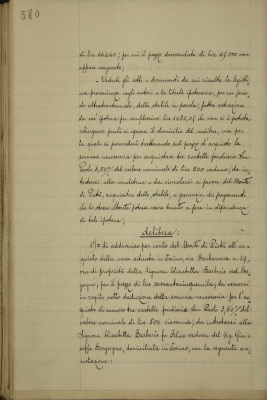 580
di lire 66240; per cui il prezzo domandato di lire 65,000 non
appare eccessivo;
Veduti gli atti e documenti da cui risulta la legitti-
ma provenienza negli autori e la libertà ipotecaria, per un perio-
do ultratrentennale, dello stabile in parola; fatta eccezione
di un'ipoteca per complessive lire
estinguere perchè si ignora il domicilio del creditore, ma per
la quale si provvederà trattenendo sul prezzo di acquisto la
somma necessaria per acquistare tre cartelle fondiarie San
Paolo 3,50% del valore nominale di lire 500 caduna; da in-
testarsi alla venditrice e da vincolarsi a favore del Monte
di Pietà, acquisitore dello stabile, a garanzia dei pagamenti
che lo stesso Monte potesse essere tenuto a fare in dipendenza
di tale ipoteca;
delibera:
1° = di addivenire per conto del Monte di Pietà all'ac-
quisto della casa situata in Torino, via Barbaroux n.
ora di proprietà della Signora Elisabetta Barberis ved. Bor-
gogno, per il prezzo di lire sessantacinquemila; da versarsi
in rogito sotto deduzione della somma necessaria per l'ac-
quisto di numero tre cartelle fondiarie San Paolo 3,50% del
valore nominale di lire 500 ciascuna; da intestarsi alla
Signora Elisabetta Barberis fu Felice vedova del Sig. Giu-
seppe Borgogno, domiciliata in Torino, con la seguente an-
notazione: